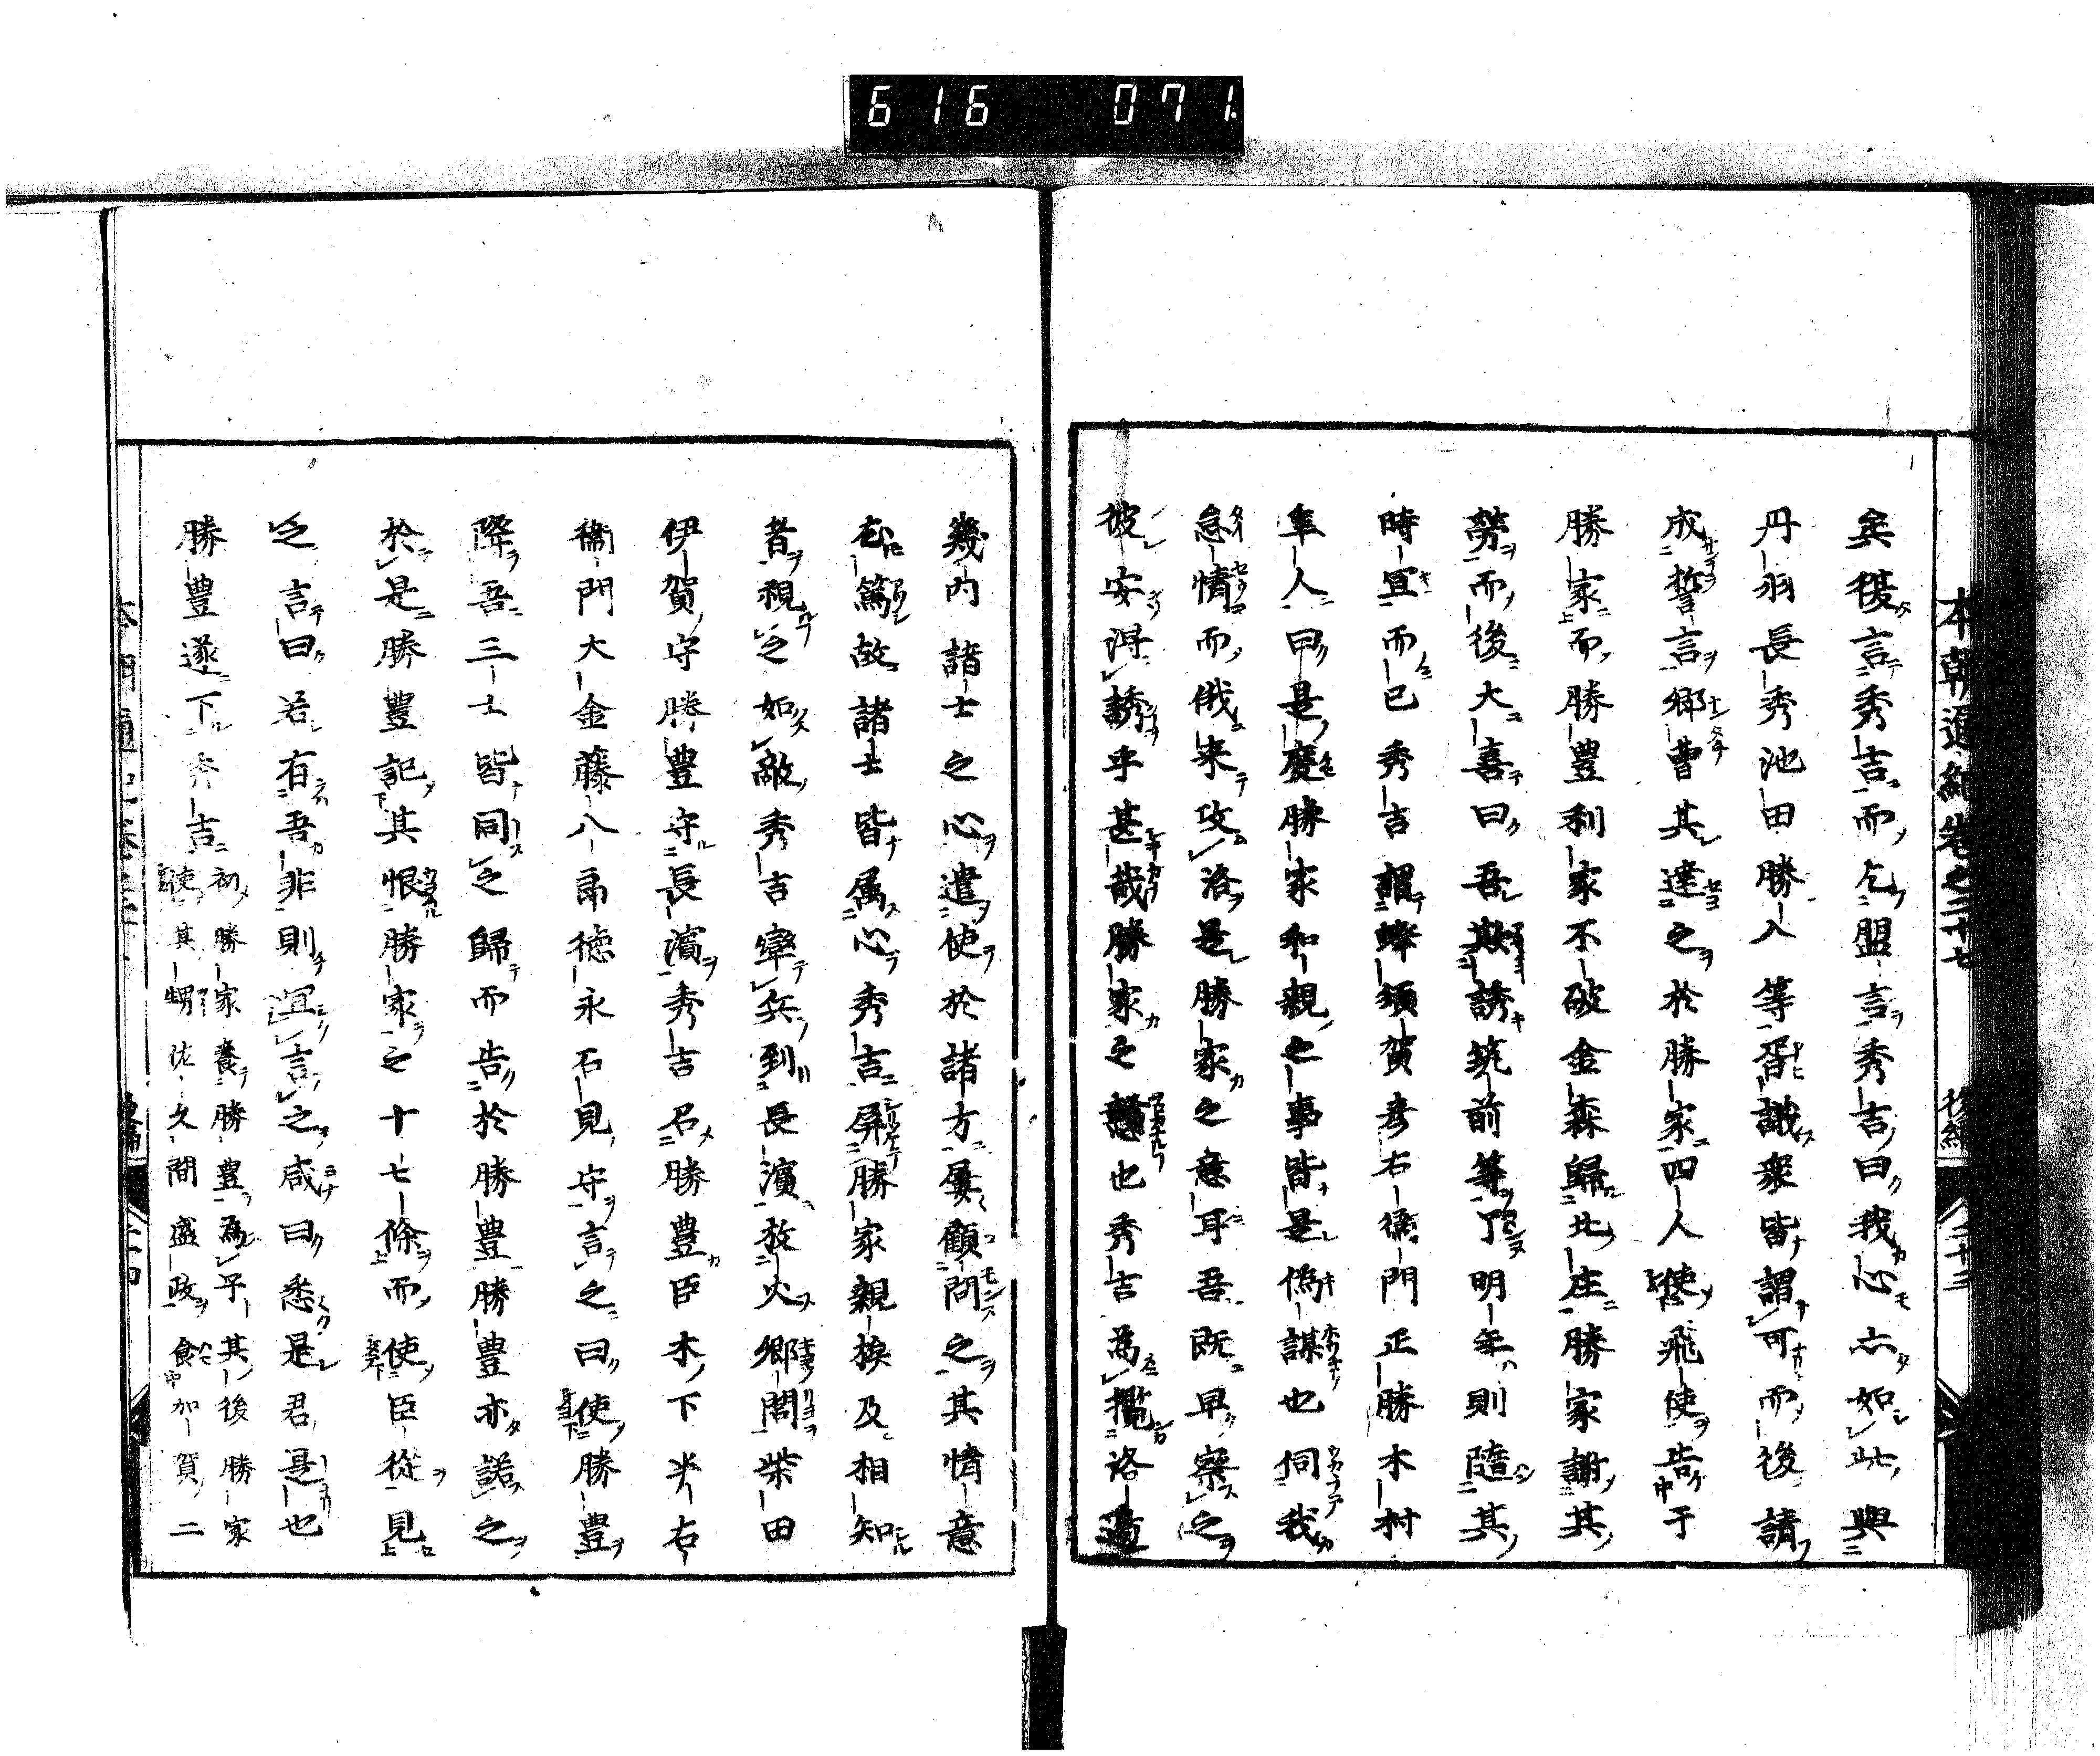 616 071
本朝通紀卷之二十七 後編 二十三
矣復言秀吉而乞盟言秀吉曰我心亦如此與
丹羽長秀池田勝入等胥議衆皆謂可而後請
成誓言鄉曹其達之於勝家四人使飛使告于
勝家而勝豊利家不破金森歸北庄勝家謝其
勞而後大喜曰吾欺誘筑前等了明年則隨其
時宜而已秀吉謂蜂須賀彦右衞門正勝木村
隼人曰是度勝家和親之事皆是偽謀也伺我
怠惰而俄来攻洛是勝家之意耳吾既早察之
彼安得誘乎甚哉勝家之戇也秀吉為攬洛邉
幾内諸士之心遣使於諸方屢顧問之其情意
尤篤故諸士皆属心秀吉屏勝家親挨及相知
者視之如敵秀吉率兵到長濵放火鄉閭柴田
伊賀守勝豊守長濵秀吉召勝豊臣木下半右
衞門大金藤八郎徳永石見守言之曰使勝豊
降吾三士皆同之歸而告於勝豊勝豊亦諾之
於是勝豊記其恨勝家之十七條而使臣從見
之言曰若有吾非則宜言之咸曰悉是君是也
勝豊遂下秀吉
初勝家養勝豊為子其後勝家
使其甥佐久間盛政食加賀二